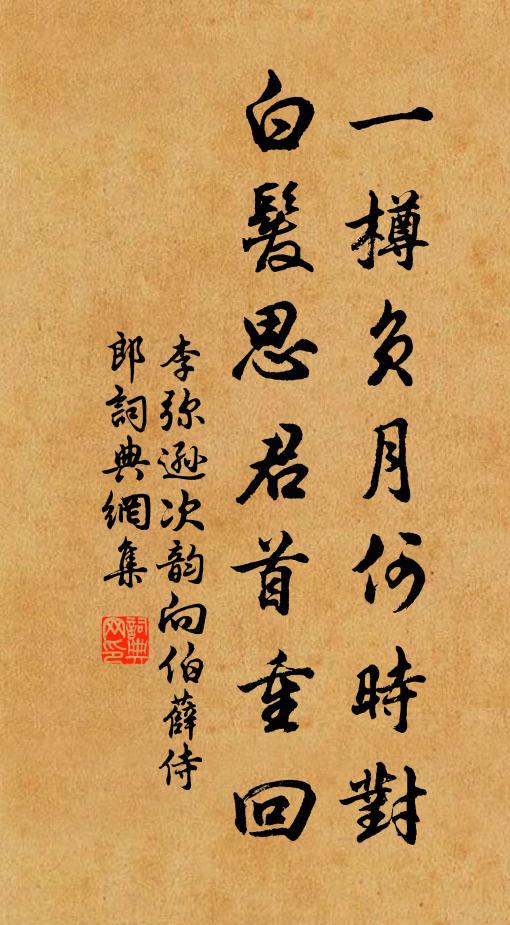 一樽負月何時對
白髮思君首重回
李弥遜次韵向伯薛侍
郎詞典網集
詞典网印